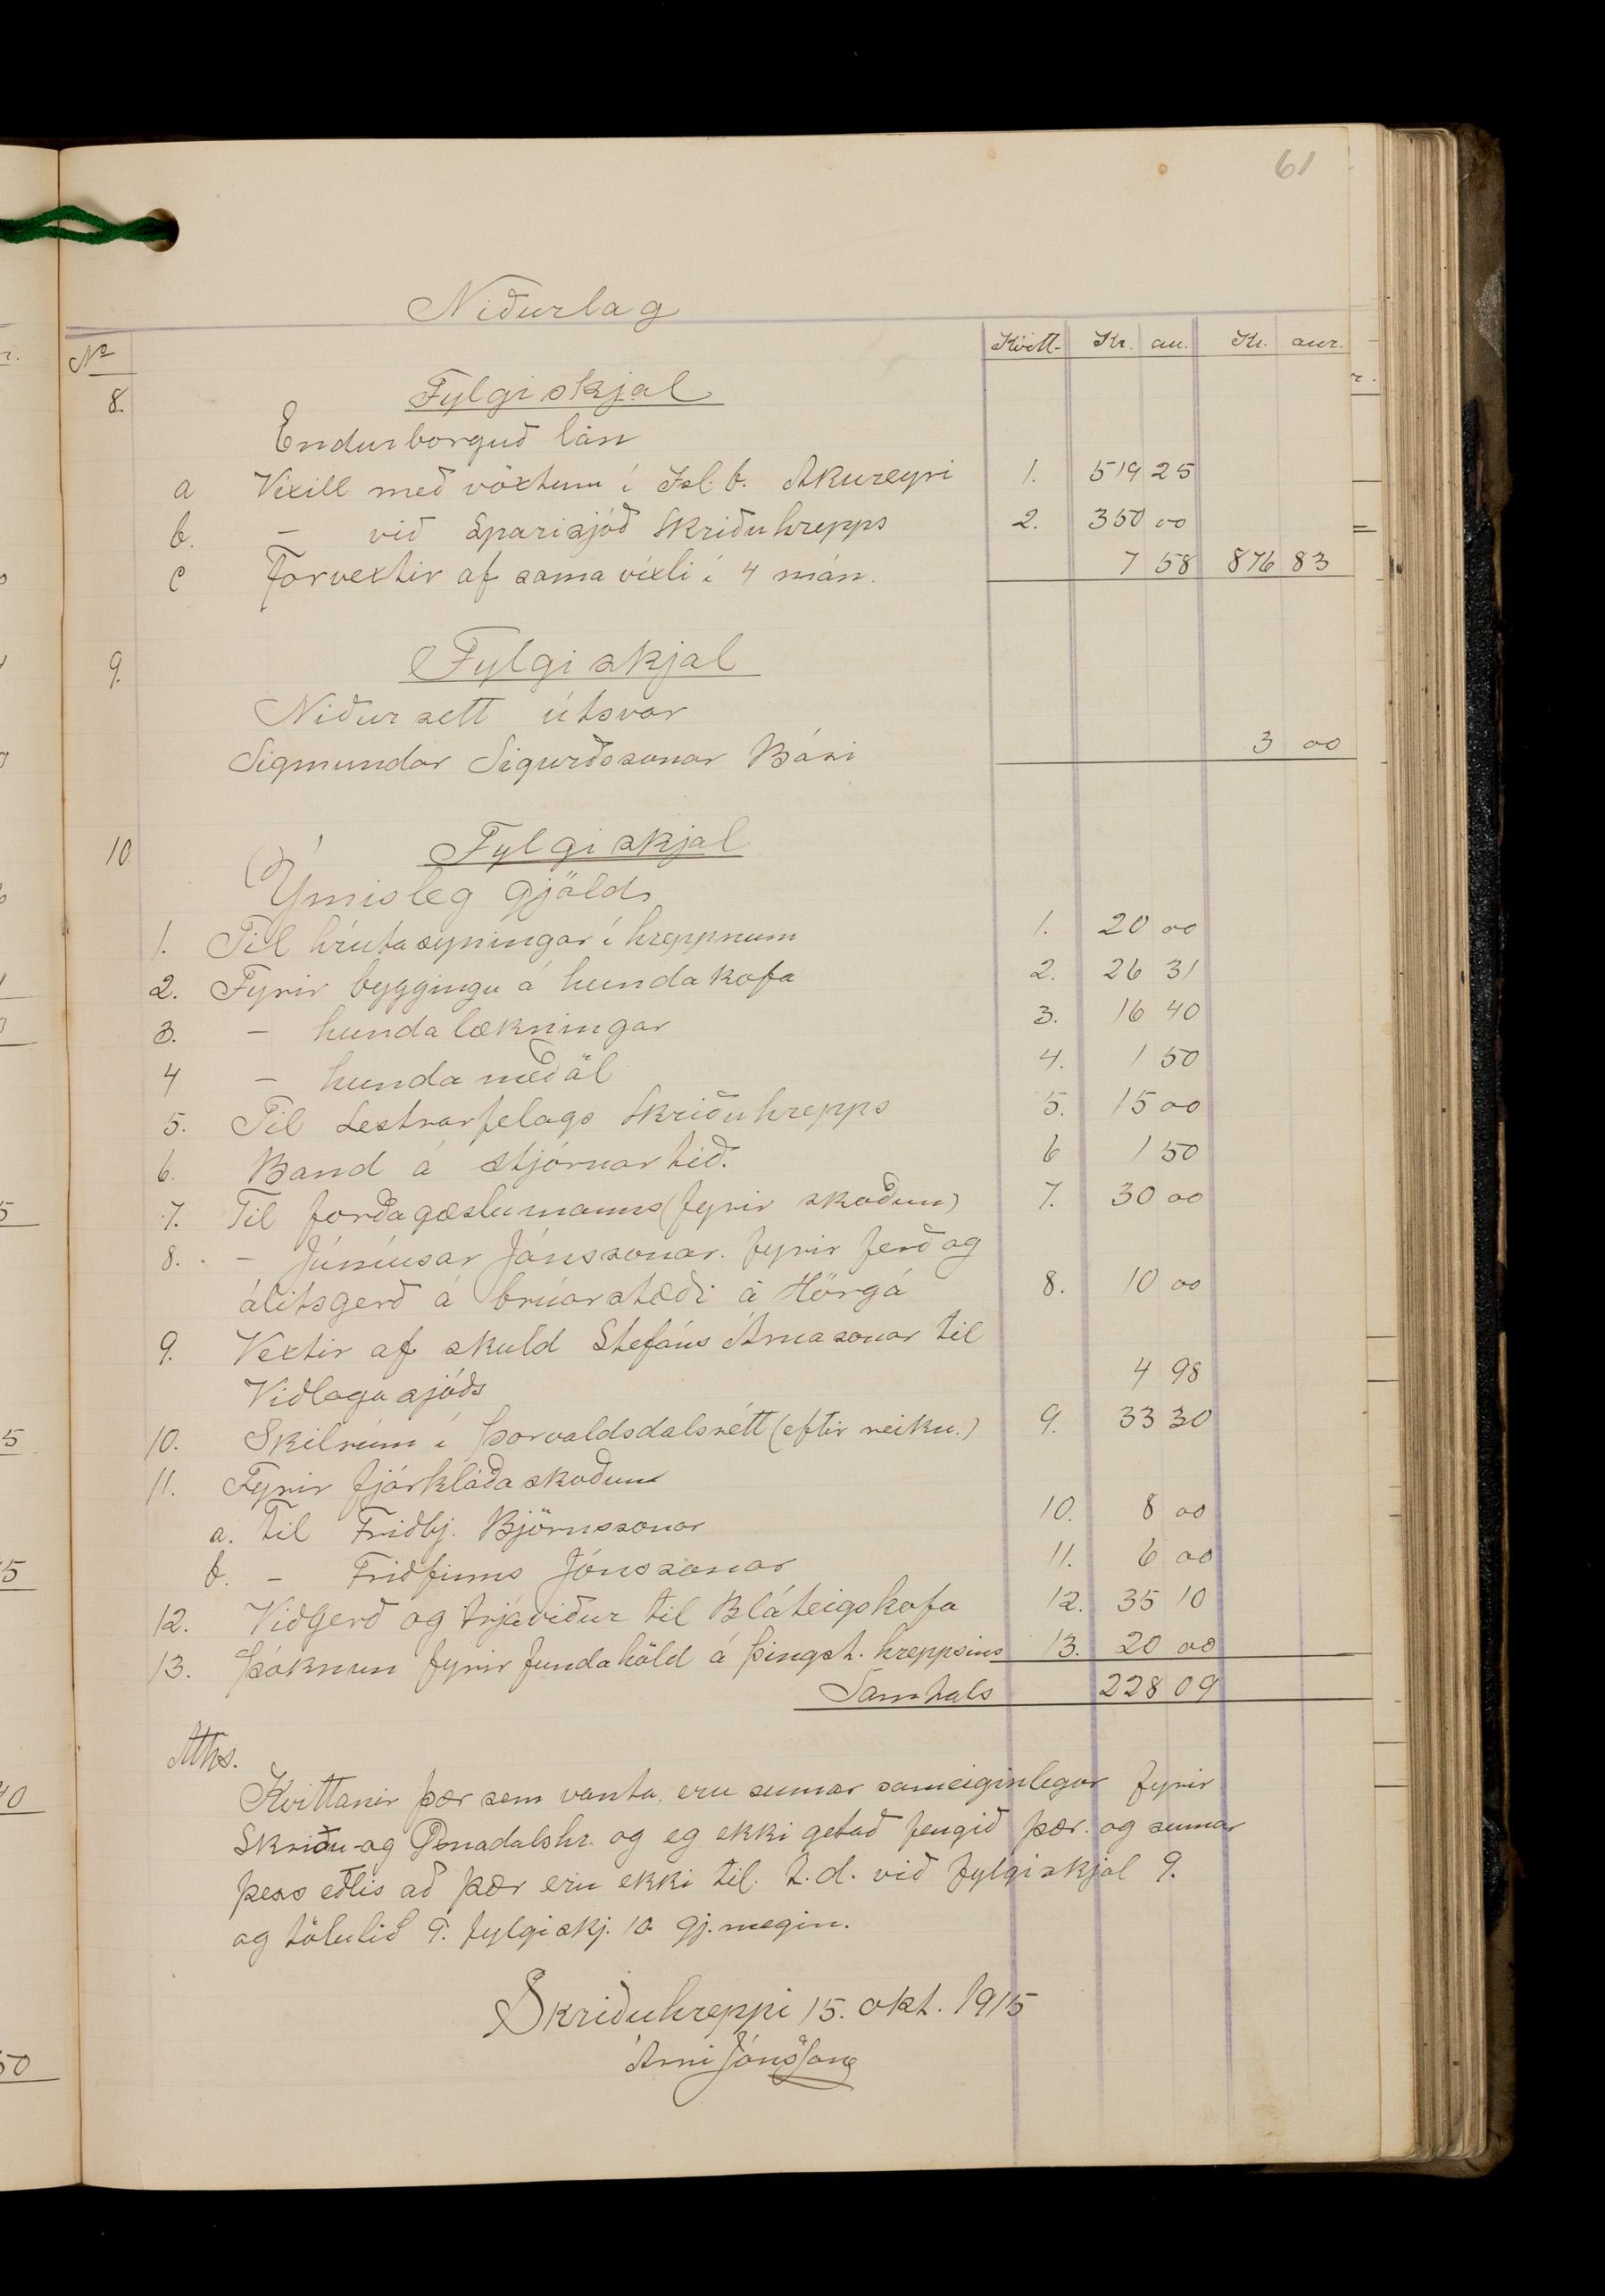 61
Niðurlag
No Kvitt. Kr. au. Kr. aur.
8. Fylgiskjal
Endurborguð lán
a Víxill með vöxtum í Ísl. b. Akureyri 1. 519 25
b. – við Sparisjóð Skriðuhrepps 2. 350 00
c Forvextir af sama víxli í 4 mán. 7 58 876 83
9. Fylgiskjal
Niðursett útsvar
Sigmundar Sigurðssonar Bási 3 00
10 Fylgiskjal
Ýmisleg gjöld
1. Til hrútasýningar í hreppnum 1. 20 00
2. Fyrir byggingu á hundakofa 2. 26 31
3. – hundalækningar 3. 16 40
4 – hundameðäl 4. 1 50
5. Til Lestrarfelags Skriðuhrepps 5. 15 00
6. Band á stjórnartíð. 6 1 50
7. Til forðagæslumanns (fyrir skoðun) 7. 30 00
8. – Júníusar Jónssonar. fyrir ferð og
álitsgerð á brúarstæði á Hörgá 8. 10 00
9. Vextir af skuld Stefáns Árnasonar til
Viðlagasjóðs 4 98
10. Skilrúm í Þorvaldsdalsrétt (eftir reikn.) 9. 33 30
11. Fyrir fjárkláðaskoðun
a. til Friðbj. Björnssonar 10. 8 00
b. – Friðfinns Jónssonar 11. 6 00
12. Viðgerð og trjáviður til Bláteigskofa 12. 35 10
13. Þóknun fyrir fundahöld á þingst. hreppsins 13. 20 00
Samtals 228 09
Aths.
Kvittanir þær sem vanta, eru sumar sameiginlegar fyrir
Skriðu- og Öxnadalshr. og eg ekki getað fengið þær. og sumar
þess eðlis að þær eru ekki til. t.d. við fylgiskjal 9.
og tölulið 9. fylgiskj. 10 gj. megin.
Skriðuhreppi 15. okt. 1915
Árni Jónsson